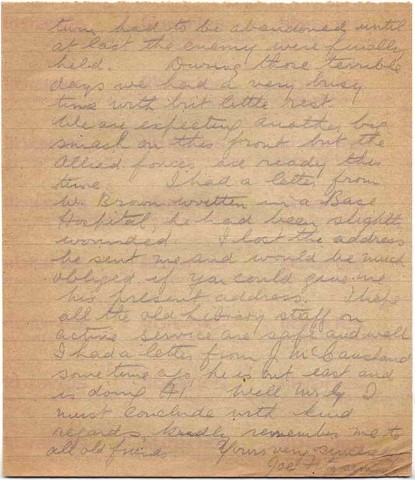 turn had to be abandoned until
at last the enemy were finally
held. During those terrible
days we had a very busy
time with but little rest.
We are expecting another big
smash on this front but the
Allied forces are ready this
time. I had a letter from
W. Brown written in a Base
Hospital, he had been slightly
wounded. I lost the address
he sent me and would be much
obliged if you could give me
his present address. I hope
all the old Library staff on
active service are safe and well
I had a letter from J. McCausland
some time ago, he is out east and
is doing A1. Well Mr G I
must conclude with kind
regards, kindly remember me to
all old friends. Yours very sincerely
Joe